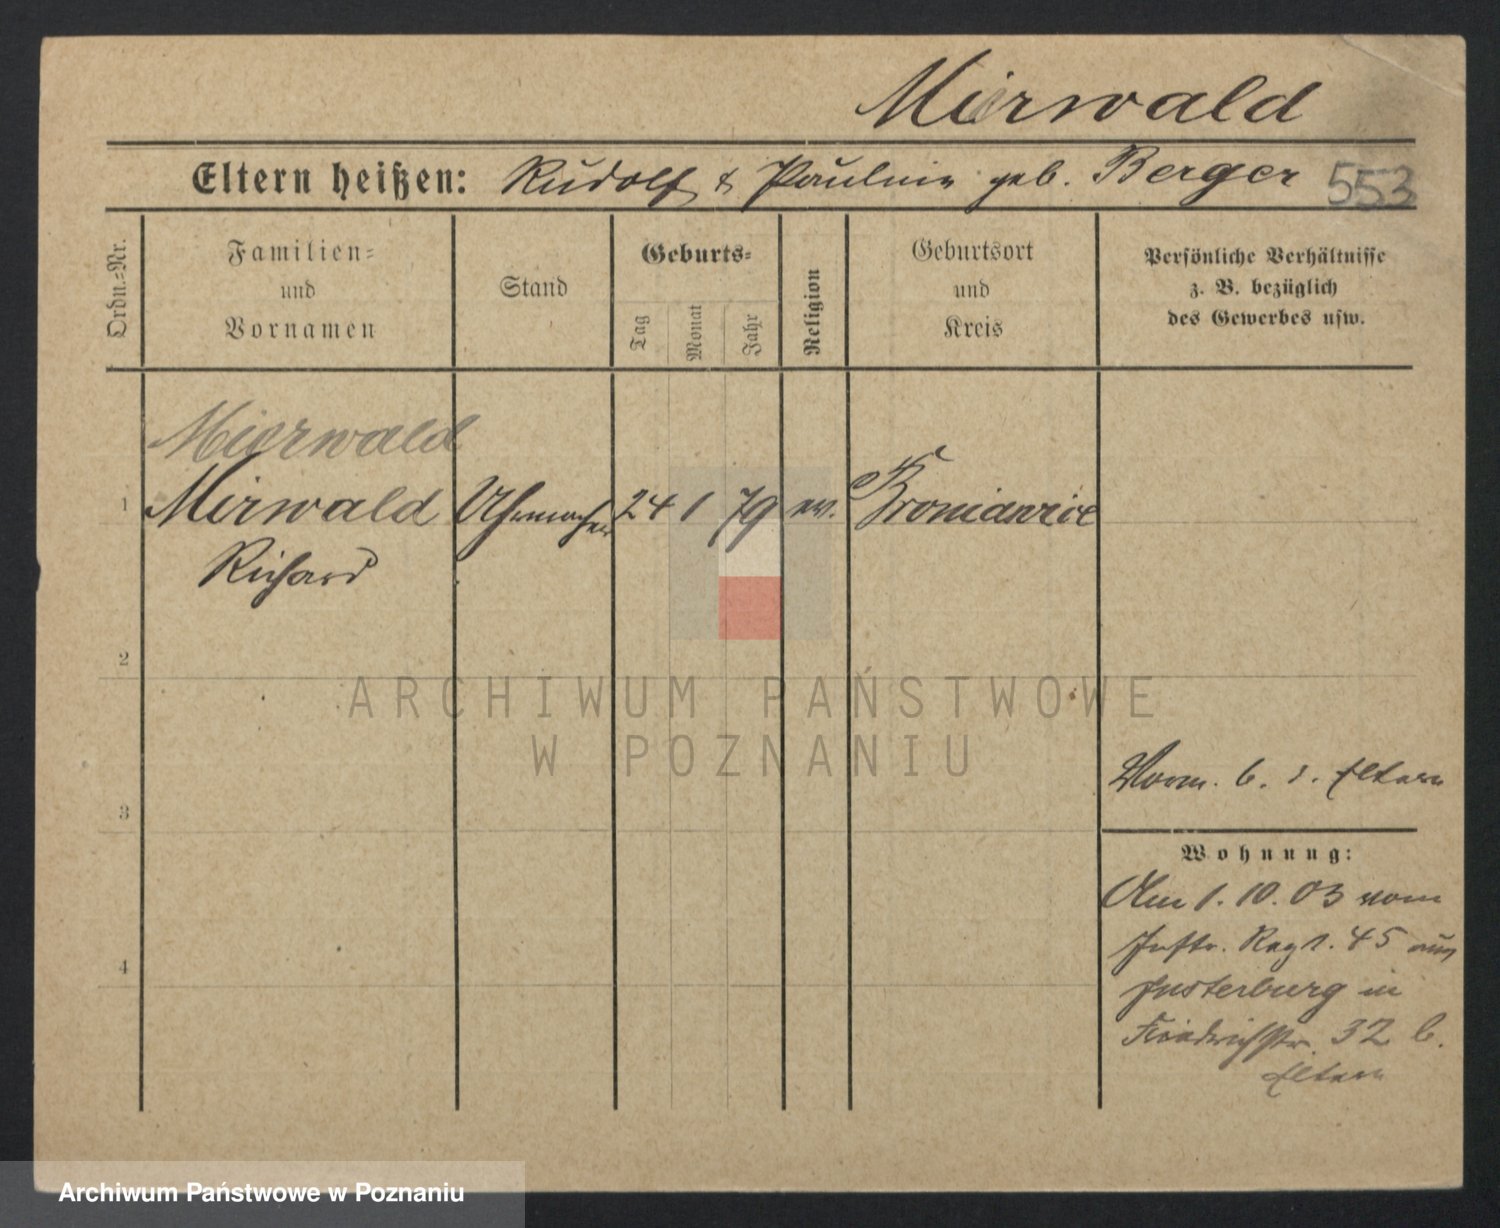 Mierwald
Eltern heißen: Rudolf & Pauline geb. Berger 553
Ordn.=Nr.
Familien=
und
Vornamen
Stand
Geburts=
Tag
Monat
Jahr
Religion
Geburtsort
und
Kreis
Persönliche Verhältnisse
z. B. bezüglich
des Gewerbes usw.
Mierwald
1 Mirwald Uhrmacher 24 1 79 ev.
Richard
2
ARCHIWUM PAŃSTWOWE
W POZNANIU
Vorm. b. d. Eltern
3
Wohnung:
Am 1. 10. 03 vom
Inftr. Regt. 45 aus
4
Insterburg in
Friedrichstr. 32 b.
Eltern
Archiwum Państwowe w Poznaniu